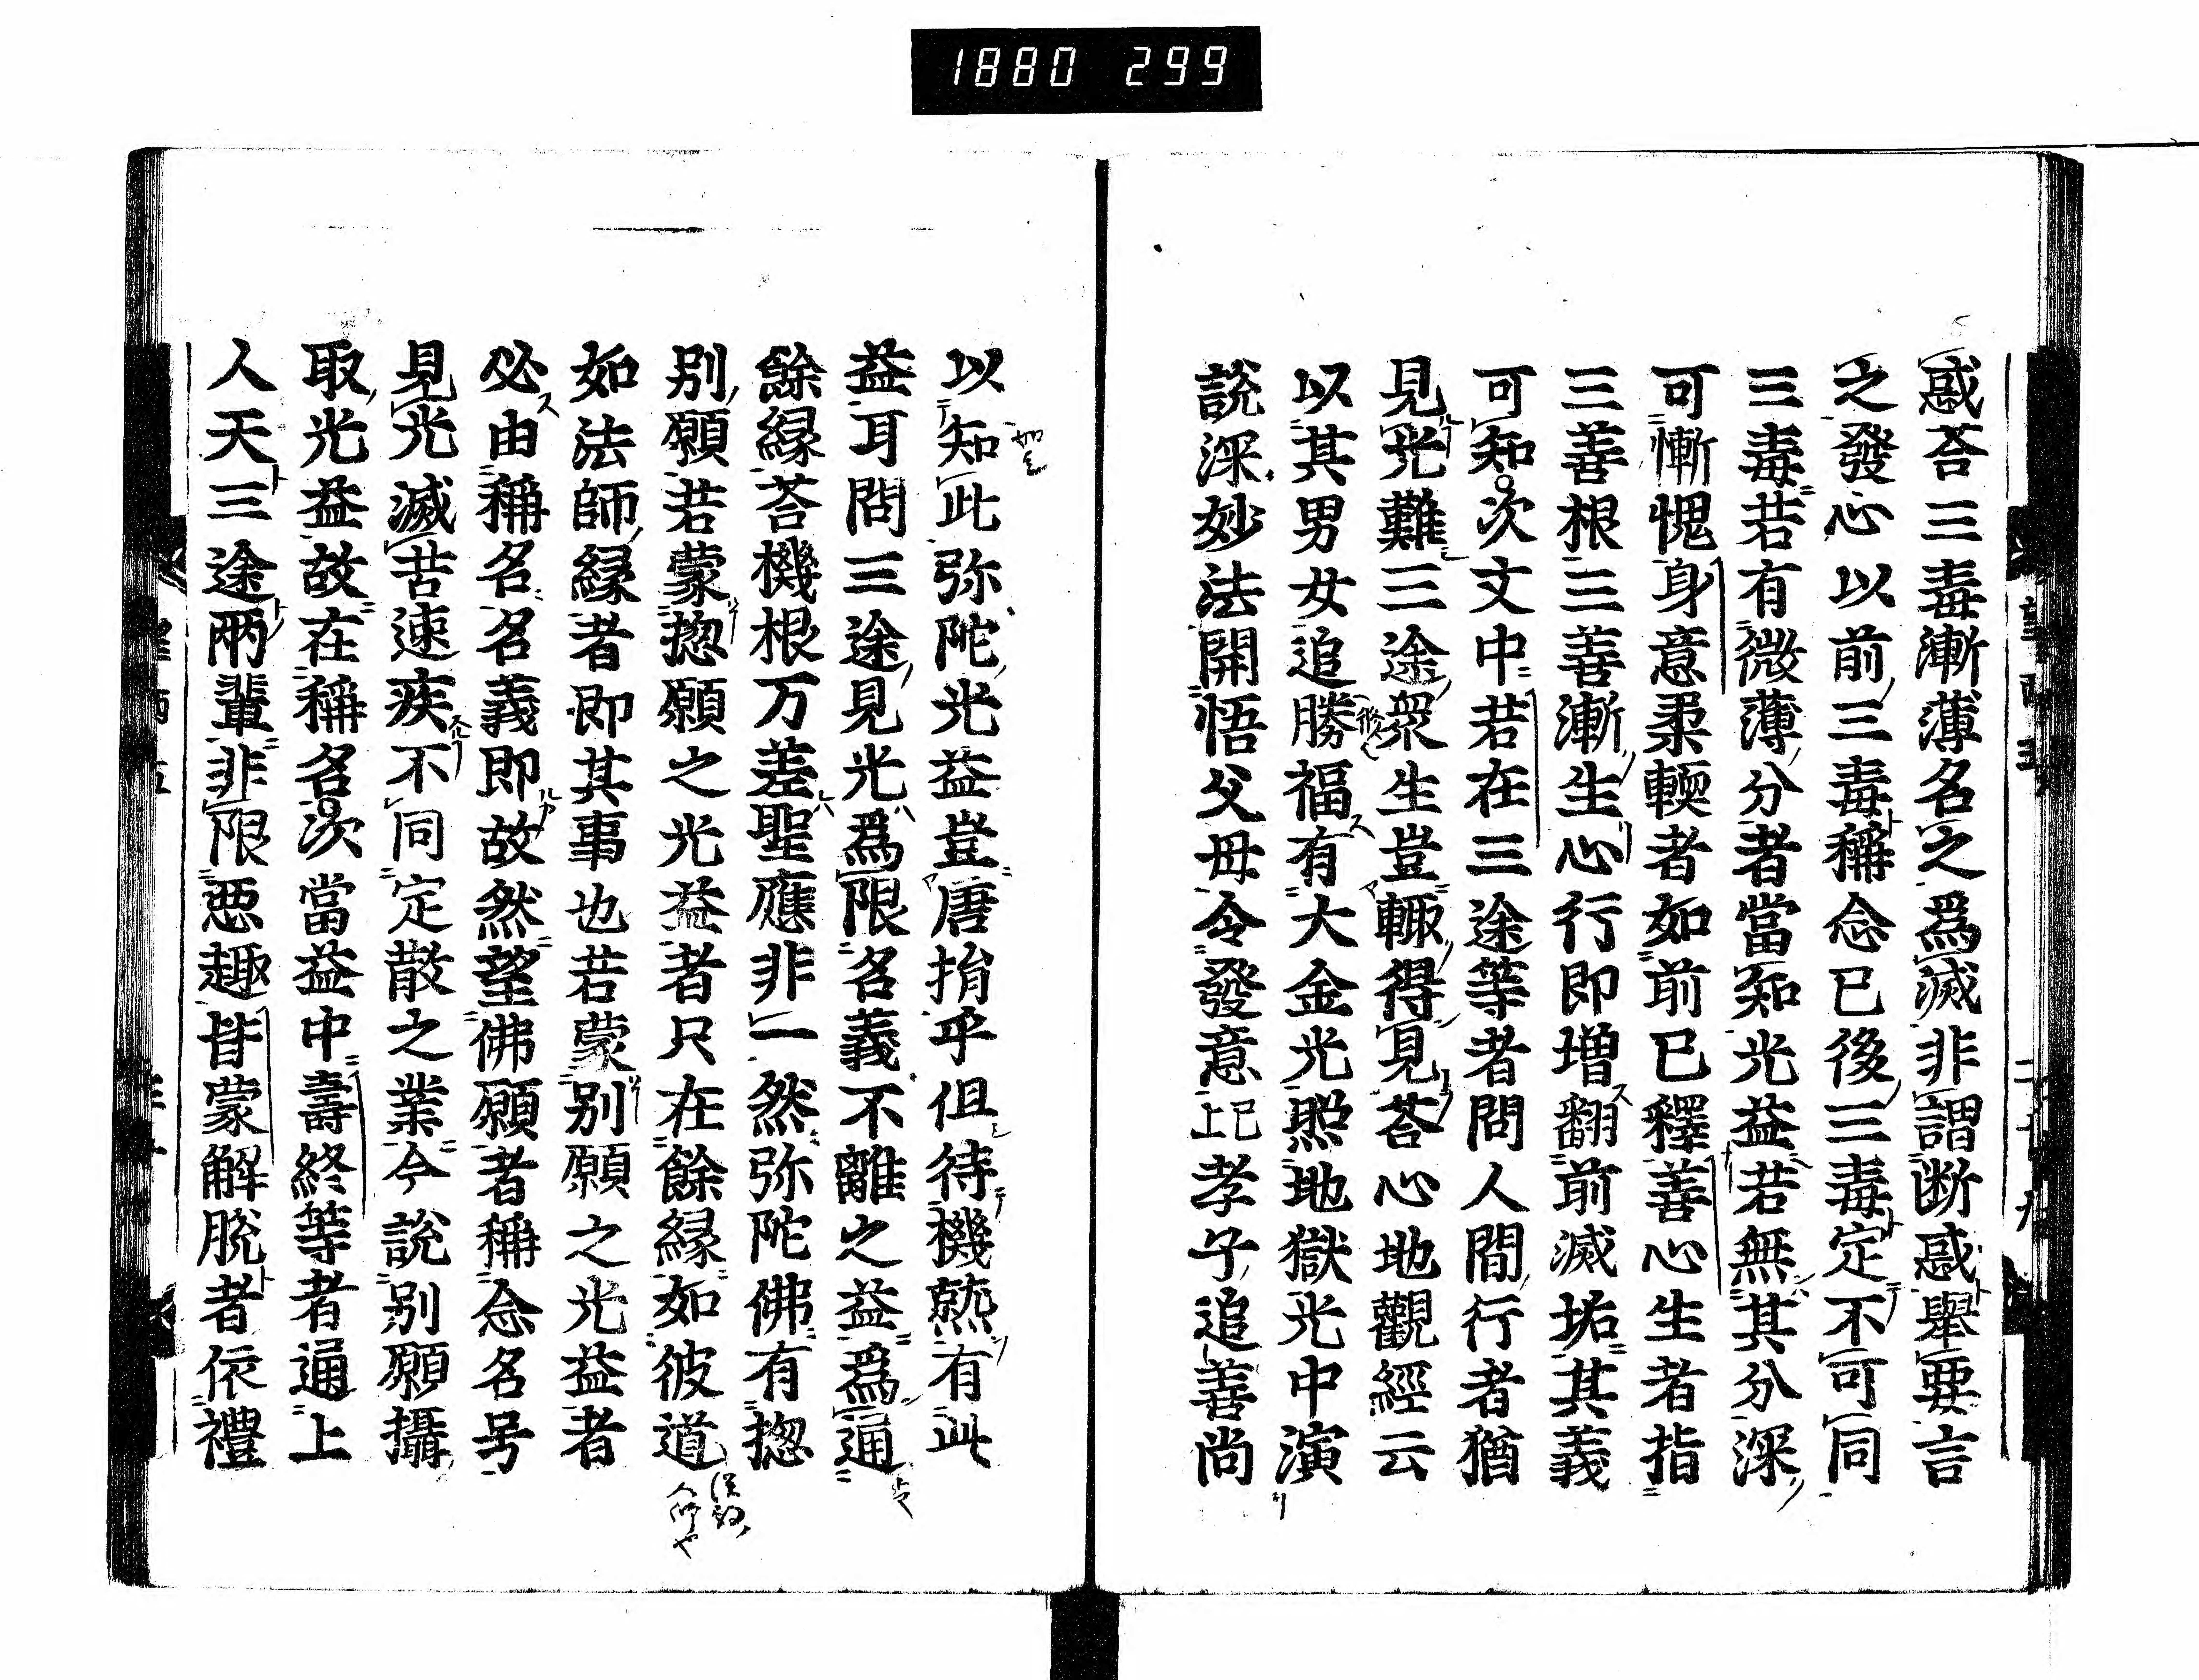 1880 299
惑荅三毒漸薄名之爲滅非謂断惑舉要言
之發心以前三毒稱念已後三毒定不可同
三毒若有微薄分者當知光益若無其分深
可慚愧身意柔輭者如前已釋善心生者指
三善根三善漸生心行即增翻前滅垢其義
可知次文中若在三途等者問人間行者猶
見光難三途衆生豈輙得見荅心地觀經云
以其男女追勝福有大金光照地獄光中演
説深妙法開悟父母令發意已上孝子追善尚
以知此弥陀光益豈唐捐乎但待機熟有此
益耳問三途見光爲限名義不離之益爲通
餘緣荅機根万差聖應非一然弥陀佛有惣
別願若蒙惣願之光益者只在餘緣如彼道
如法師緣者即其事也若蒙別願之光益者
必由稱名名義即故然望佛願者稱念名号
見光滅苦速疾不同定散之業今説別願攝
取光益故在稱名次當益中壽終等者通上
人天三途兩輩非限惡趣皆蒙解脱者依禮